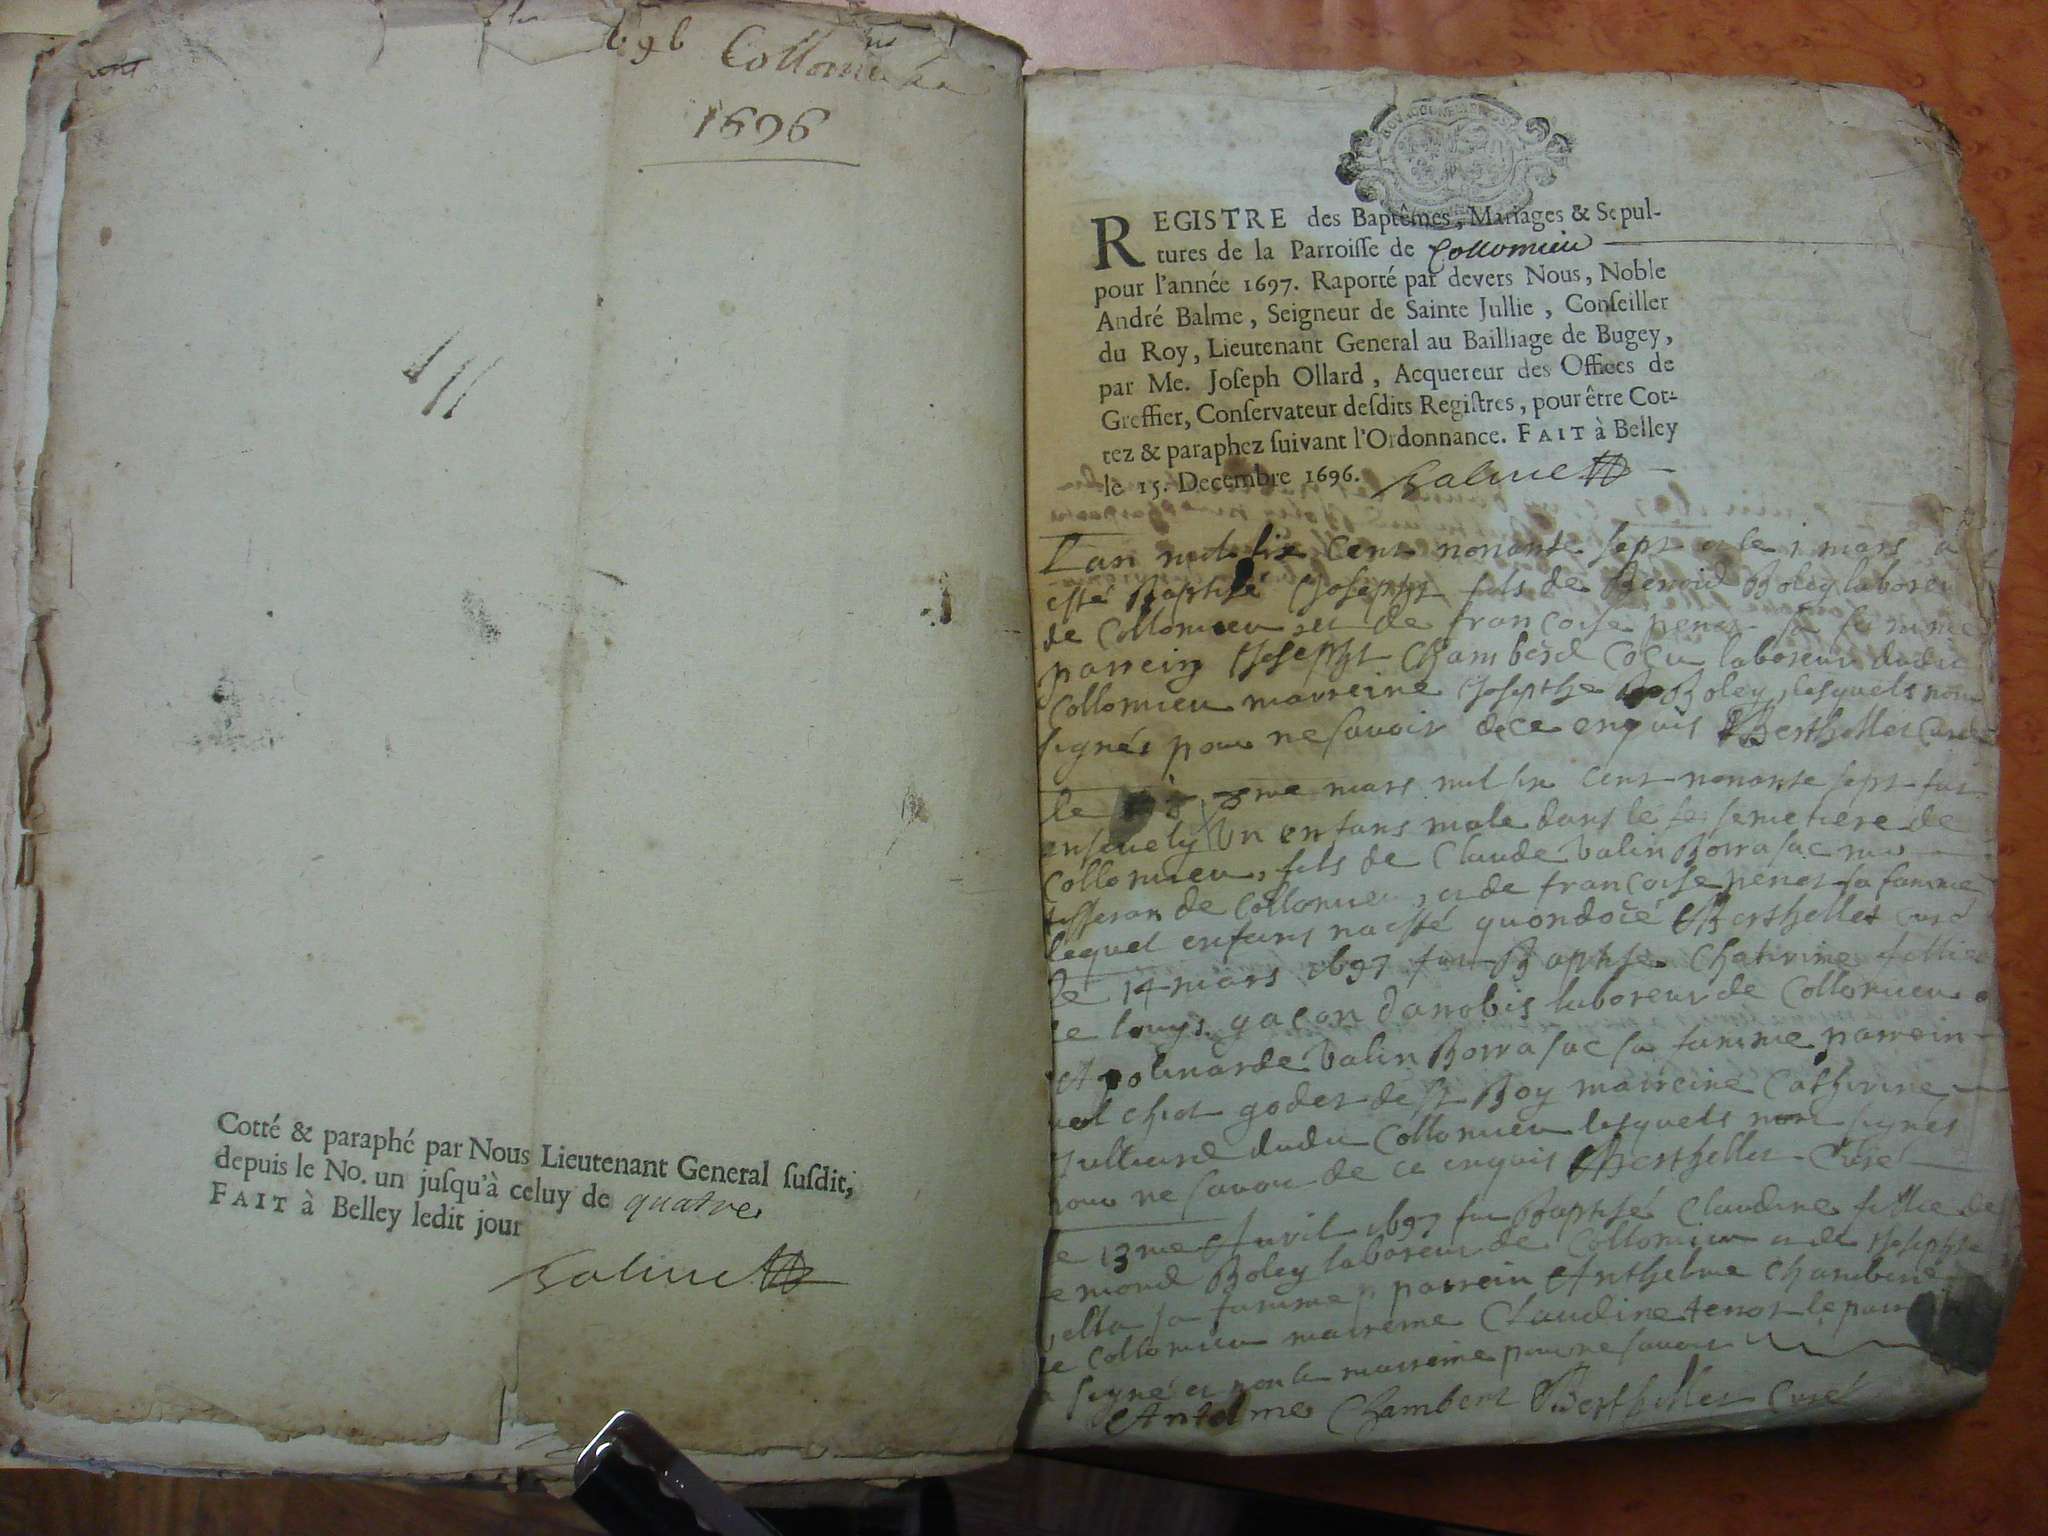 Collomieu
1696
Cotté & paraphé par Nous Lieutenant General ſuſdit,
depuis le No. un juſqu'à celuy de quatre
FAIT à Belley ledit jour
Balme
REGISTRE des Baptêmes, Mariages & Sepul-
tures de la Parroiſſe de Collomieu
pour l'année 1697. Raporté par devers Nous, Noble
André Balme, Seigneur de Sainte Jullie, Conſeiller
du Roy, Lieutenant General au Bailliage de Bugey,
par Me. Joſeph Ollard, Acquereur des Offices de
Greffier, Conſervateur deſdits Regiſtres, pour être Cot-
tez & paraphez ſuivant l'Ordonnance. FAIT à Belley
le 15. Decembre 1696. Balme
L'an mil six cent nonante sept et le 1 mars a
esté Baptisé Joseph fils de Benoid Boley laboreu
de Collomieu et de francoise penet sa femme
parrein Joseph Chamberd laboreur dudit
Collomieu marreine Josepthe Boley, lesquels non
signés pour ne savoir de ce enquis Berthellet Curé
le me mars mil six cent nonante sept fut
ensevely un enfans male dans le semetiere de
Collomieu, fils de Claude Valin Borrasac
tisseran de Collomieu, et de francoise penet sa famme
lequel enfans na esté quondoié Berthellet curé
le 14 mars 1697 fut Baptisé Chatirine fillie
de louys gacon danobis laboreur de Collomieu
Apolinarde Valin Borrasac sa famme parrein
godet de st Boy marreine Catherine
Julliand dudit Collomieu lesquels non signés
pour ne savoir de ce enquis Berthellet Curé
le 13me Avril 1697 fut Baptisé Claudine fillie de
emond Boley laboreur de Collomieu et de Josephte
sa famme parrein Anthelme Chamberd
de Collomieu marreine Claudine tenot le parr
a signé et non la marreine pour ne savoir
Antelme Chambert Berthellet Curé